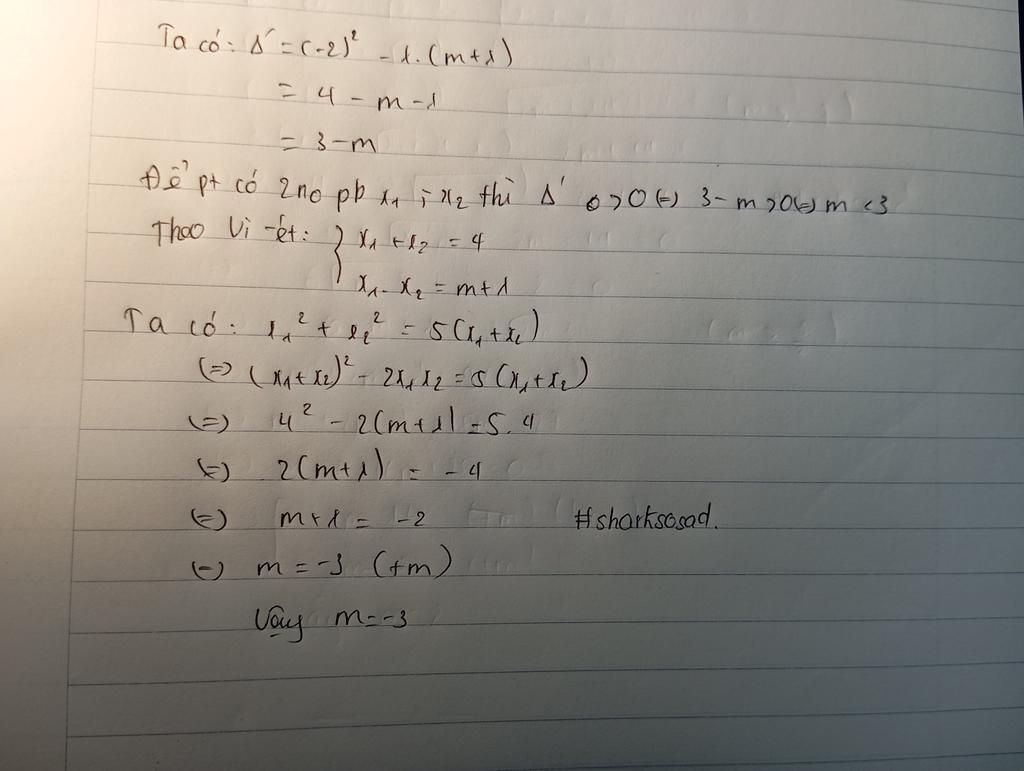 Ta có: Δ' = (-2)² - 1.(m+1)
= 4 - m - 1
= 3 - m
Để pt có 2 no pb x₁ ; x₂ thì Δ' > 0 (=) 3 - m > 0 (=) m < 3
Theo Vi-ét: { x₁ + x₂ = 4
x₁ . x₂ = m+1
Ta có: x₁² + x₂² = 5(x₁+x₂)
(=) (x₁+x₂)² - 2x₁x₂ = 5(x₁+x₂)
(=) 4² - 2(m+1) = 5.4
(=) 2(m+1) = -4
(=) m+1 = -2 #sharksosad.
(=) m = -3 (tm)
Vậy m = -3